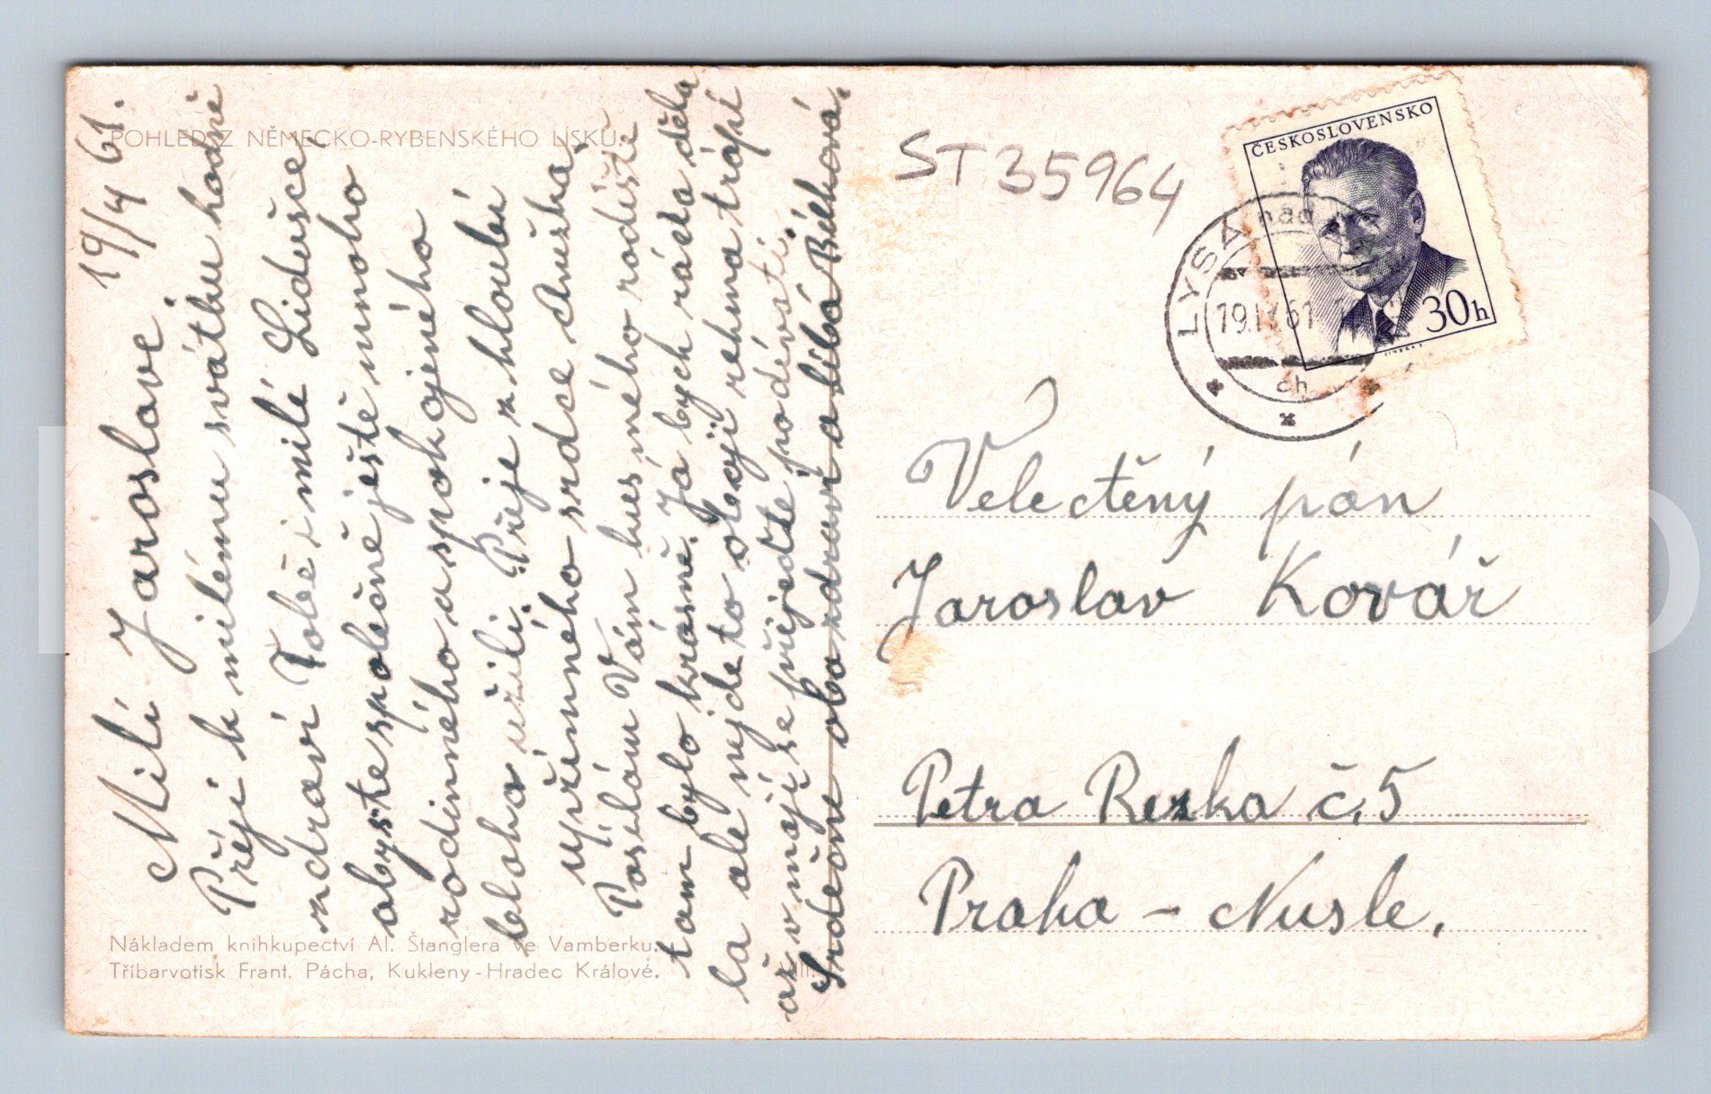 POHLED Z NĚMECKO-RYBENSKÉHO LÍSKU.
19/4 61.
Milí Jaroslave!
Přeji k milému svátku hodně
zdraví Tobě i milé Lidušce,
abyste společně ještě mnoho
rodinného a spokojeného
bloha užili. Přeje z hloubi
upřímného srdce Anuška,
Posílám Vám kus mého rodiště
tam bylo krásně. Já bych ráda děla
la ale nejde to olseji rehma trápí
až v máji se přijeďte podívati.
Srdečně oba zdraví a líbá Bělková.
Nákladem knihkupectví Al. Štanglera ve Vamberku.
Tříbarvotisk Frant. Pácha, Kukleny-Hradec Králové.
ST35964
ČESKOSLOVENSKO
30h
LYSÁ nad
19.IV.61
ch
Velectěný pán
Jaroslav Kovář
Petra Rezka č.5
Praha - Nusle.